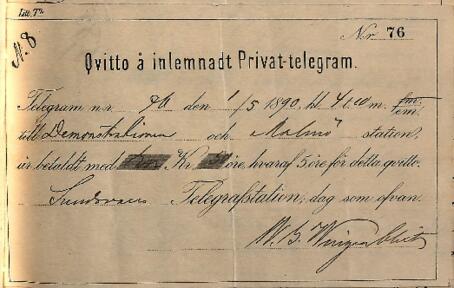 Litt. Tb.
N. 8
Nr 76
Qvitto å inlemnadt Privat-telegram.
Telegram n:r den 1/5 1890, kl. 41.00 m. fm. em.
till Demonstrationen och Malmö station,
är betaldt med Kr öre, hvaraf 5 öre för detta qvitto.
Telegrafstation, dag som ofvan.